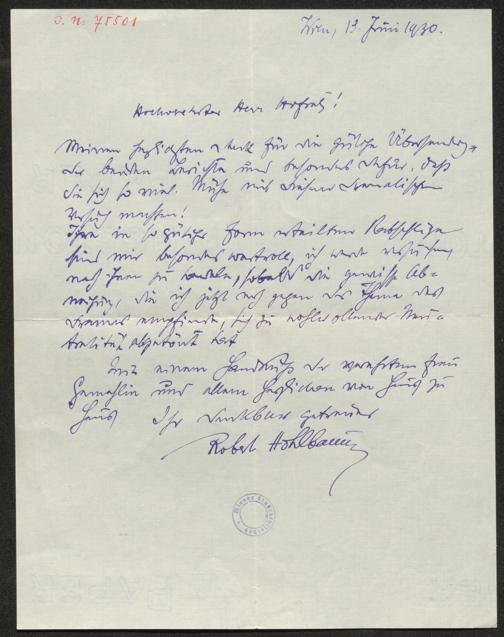 J. N. 75501
Wien, 13. Juni 1930.
Hochverehrter Herr Hofrat!
Meinen herzlichsten Dank für die gütige Übersendung
der beiden Berichte und besonders dafür, daß
Sie sich so viel Mühe mit diesem dramatischen
Versuch machten!
Ihre in so gütiger Form erteilten Ratschläge
sind mir besonders wertvoll, ich werde versuchen
nach Ihnen zu handeln, sobald die gewisse Ab-
neigung, die ich jetzt noch gegen das Thema des
Dramas empfinde, sich zu wohlwollender Neu-
tralität abgetönt hat
Mit einem Handkuß der verehrten Frau
Gemahlin und allem Herzlichen von Haus zu
Haus Ihr dankbar getreuer
Robert Hohlbaum